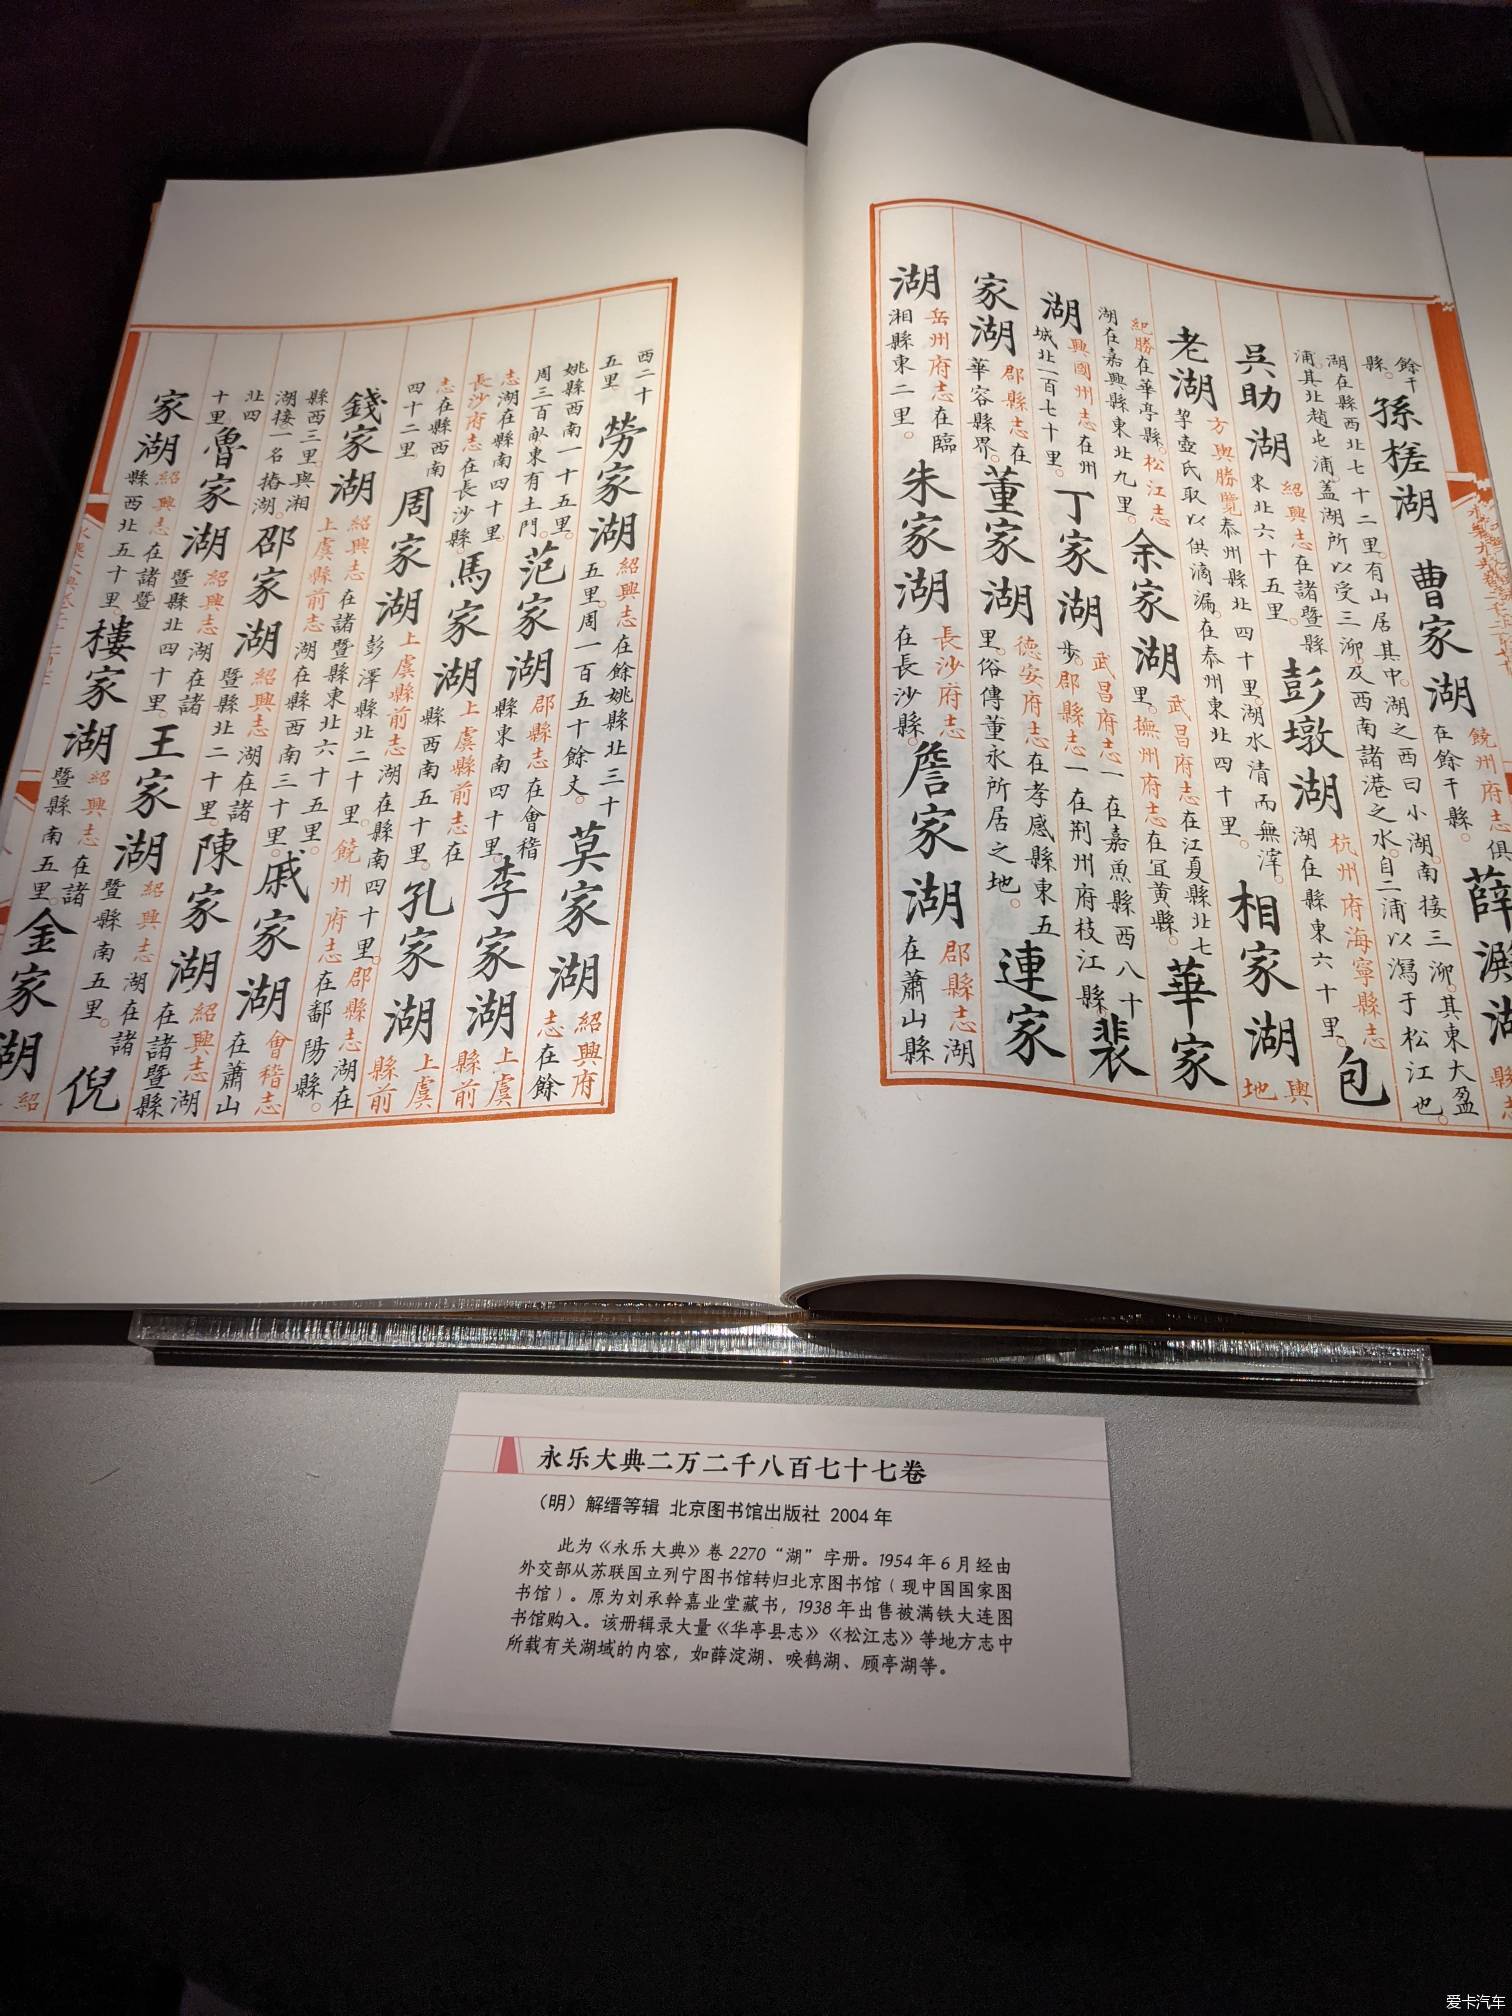 餘干
縣。
孫槎湖
曹家湖
饒州府志俱
在餘干縣。
薛澱湖
縣志
湖在縣西北七十二里。有山居其中。湖之西曰小湖。南接三泖。其東大盈
浦。其北趙屯浦。蓋湖所以受三泖。及西南諸港之水。自二浦以瀉于松江也。
吳助湖
紹興志在諸暨縣
東北六十五里。
彭墩湖
杭州府海寧縣志
湖在縣東六十里。
包
老湖
方輿勝覽泰州縣北四十里湖水清而無滓。
挈壺氏取以供滴漏。在泰州東北四十里。
相家湖
輿
地
紀勝在華亭縣。松江志
湖在嘉興縣東北九里。
余家湖
武昌府志在江夏縣北七
里。撫州府志在宜黃縣。
華家
湖
興國州志在州
城北一百七十里。
丁家湖
武昌府志一在嘉魚縣西八十
步。郡縣志一在荆州府枝江縣
裴
家湖
郡縣志在
華容縣界。
董家湖
德安府志在孝感縣東五
里。俗傳董永所居之地。
連家
湖
岳州府志在臨
湘縣東二里。
朱家湖
長沙府志
在長沙縣。
詹家湖
郡縣志湖
在蕭山縣
西二十
五里
勞家湖
紹興志在餘姚縣北三十
五里。周一百五十餘丈。
莫家湖
紹興府
志在餘
姚縣西南一十五里。
周三百畝東有土門。
范家湖
郡縣志在會稽
縣東南四十里。
李家湖
上虞
縣前
志湖在縣南四十里。
長沙府志在長沙縣。
馬家湖
上虞縣前志在
縣西南五十里。
孔家湖
上虞
縣前
志在縣西南
四十二里
周家湖
上虞縣前志湖在縣南四十里。郡縣志湖在
彭澤縣北二十里。饒州府志在鄱陽縣。
錢家湖
紹興志在諸暨縣東北六十五里。
上虞縣前志湖在縣西南三十里。
戚家湖
會稽志
在蕭山
縣西三里與湘
湖接。一名湖。
邵家湖
紹興志湖在諸
暨縣北二十里。
陳家湖
紹興志湖
在諸暨縣
北四
十里
魯家湖
紹興志湖在諸
暨縣北四十里。
王家湖
紹興志湖在諸
暨縣南五里。
倪
家湖
紹興志在諸暨
縣西北五十里。
樓家湖
紹興志在諸
暨縣南五里。
金家湖
紹
永乐大典二万二千八百七十七卷
（明）解缙等辑 北京图书馆出版社 2004年
此为《永乐大典》卷2270“湖”字册。1954年6月经由
外交部从苏联国立列宁图书馆转归北京图书馆（现中国国家图
书馆）。原为刘承幹嘉业堂藏书，1938年出售被满铁大连图
书馆购入。该册辑录大量《华亭县志》《松江志》等地方志中
所载有关湖域的内容，如薛淀湖、唳鹤湖、顾亭湖等。
爱卡汽车